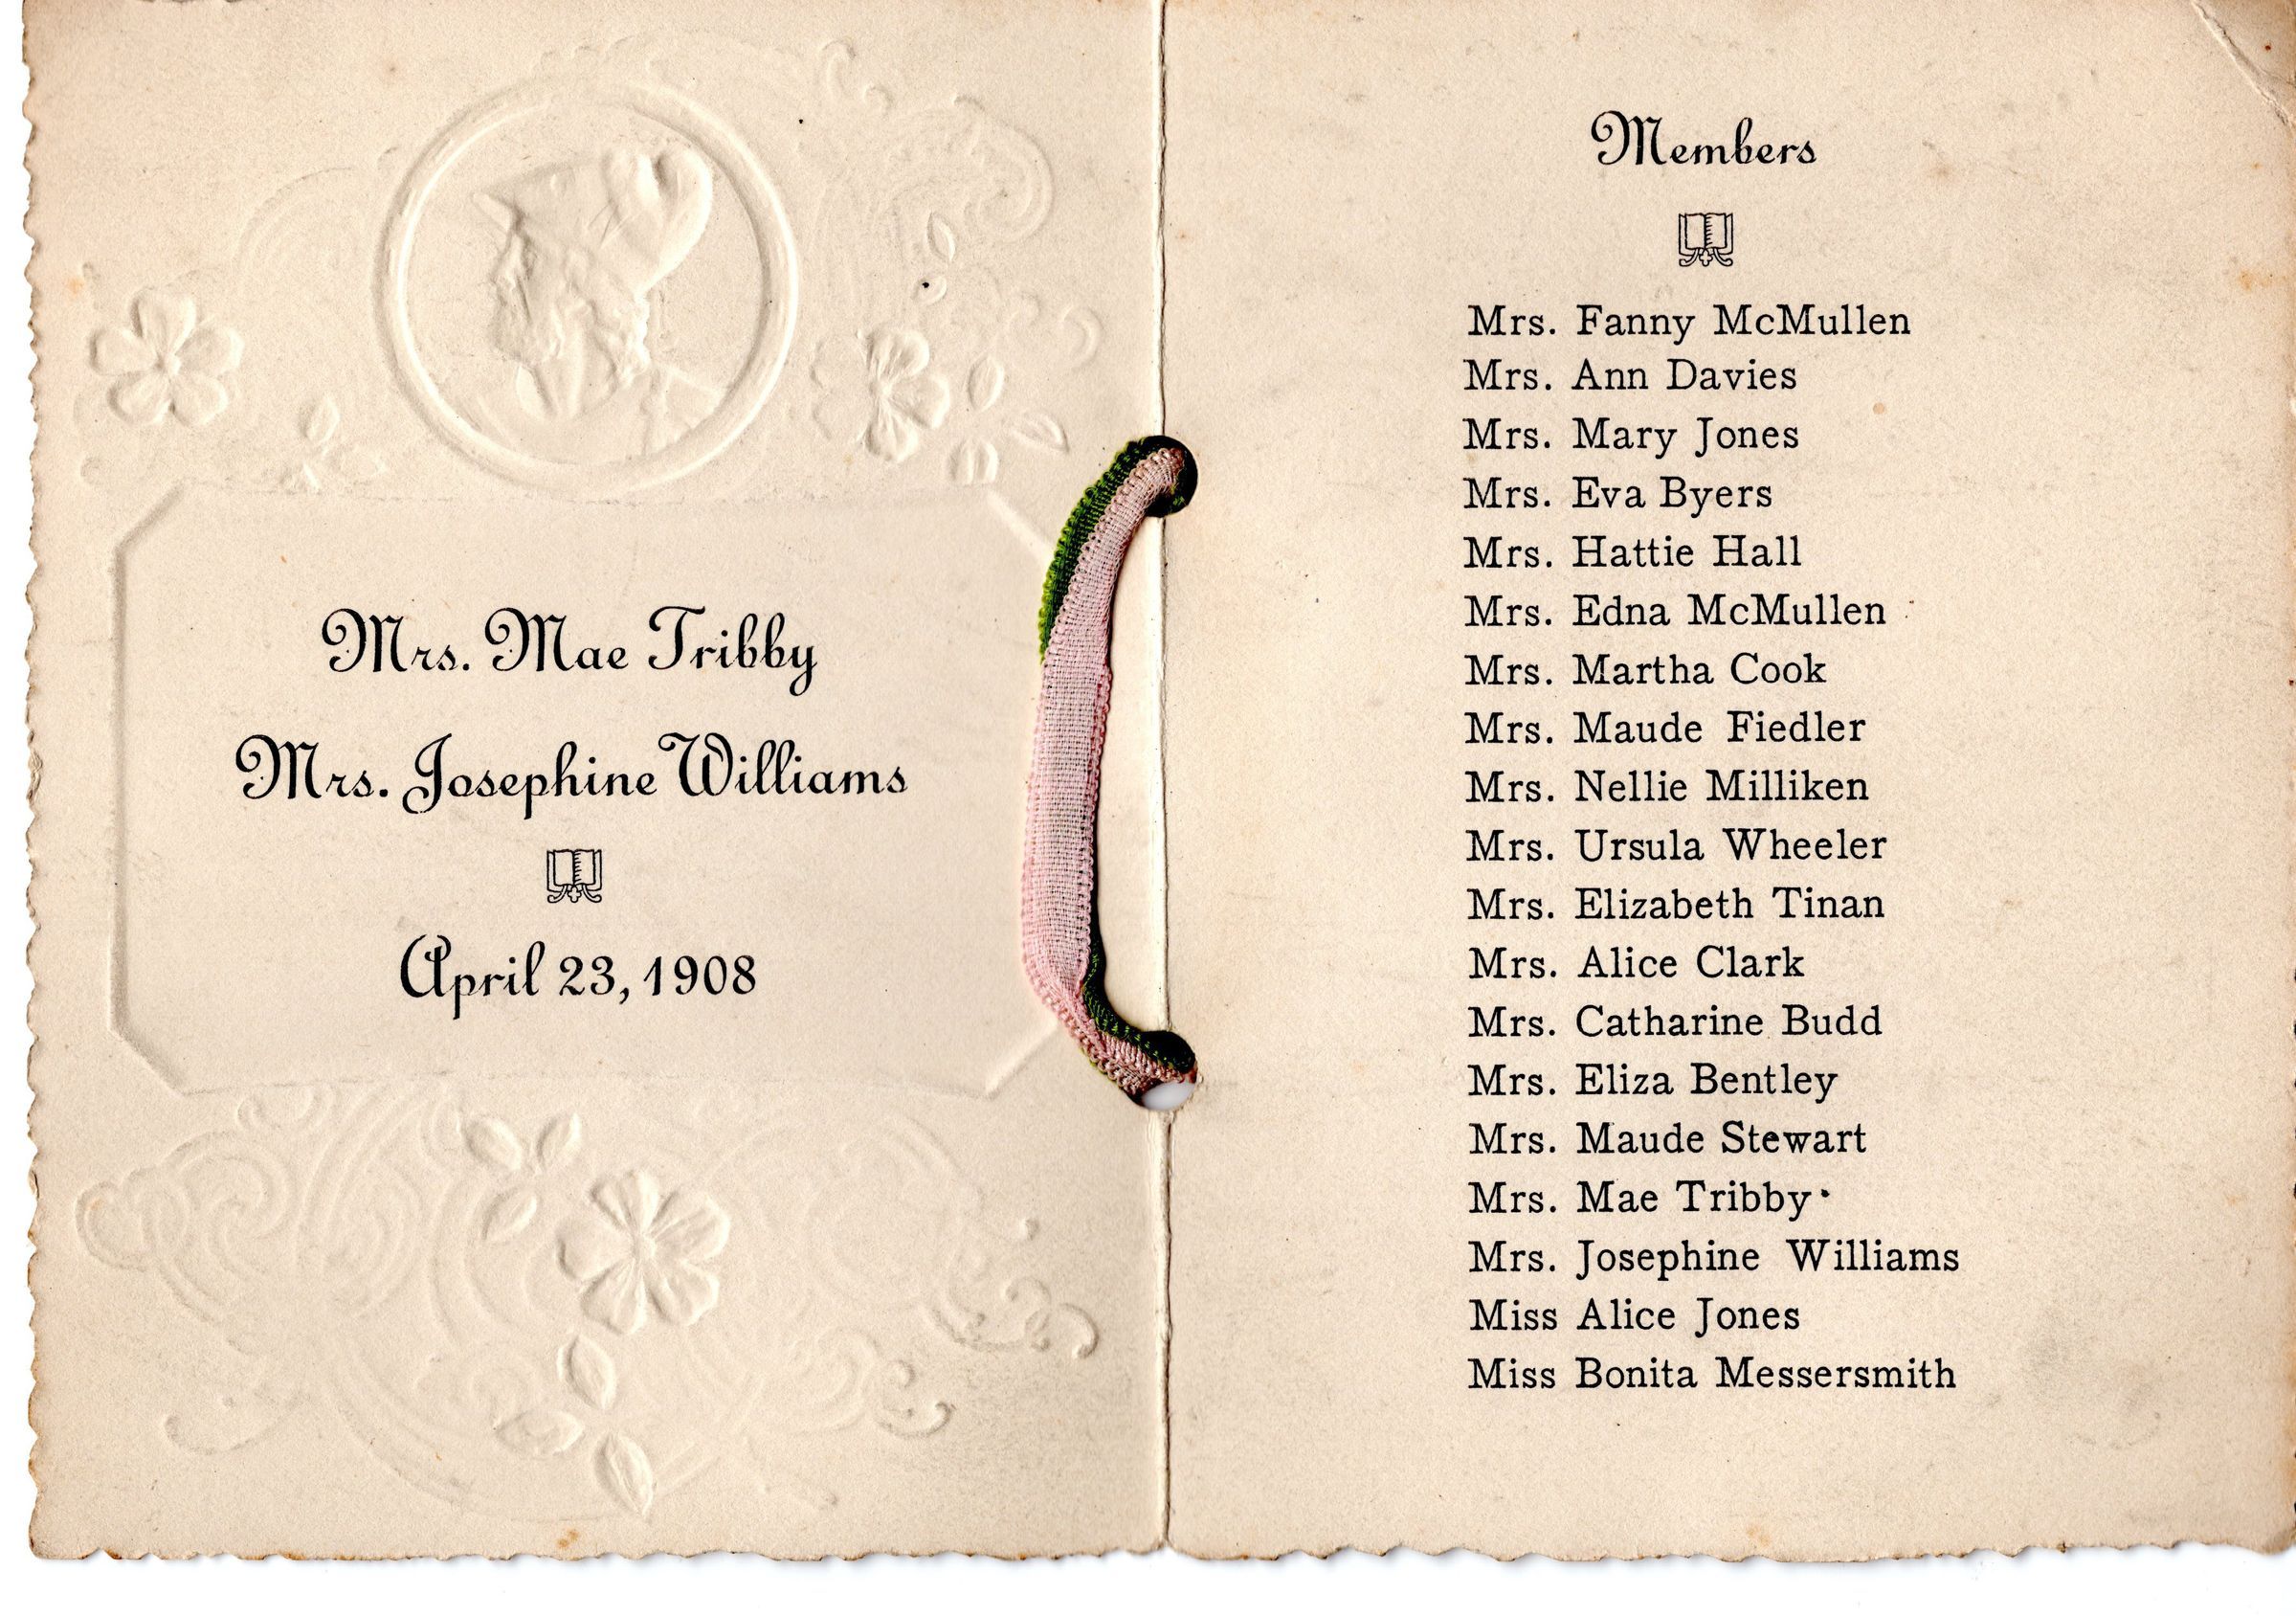 Mrs. Mae Tribby
Mrs. Josephine Williams
April 23, 1908
Members
Mrs. Fanny McMullen
Mrs. Ann Davies
Mrs. Mary Jones
Mrs. Eva Byers
Mrs. Hattie Hall
Mrs. Edna McMullen
Mrs. Martha Cook
Mrs. Maude Fiedler
Mrs. Nellie Milliken
Mrs. Ursula Wheeler
Mrs. Elizabeth Tinan
Mrs. Alice Clark
Mrs. Catharine Budd
Mrs. Eliza Bentley
Mrs. Maude Stewart
Mrs. Mae Tribby
Mrs. Josephine Williams
Miss Alice Jones
Miss Bonita Messersmith